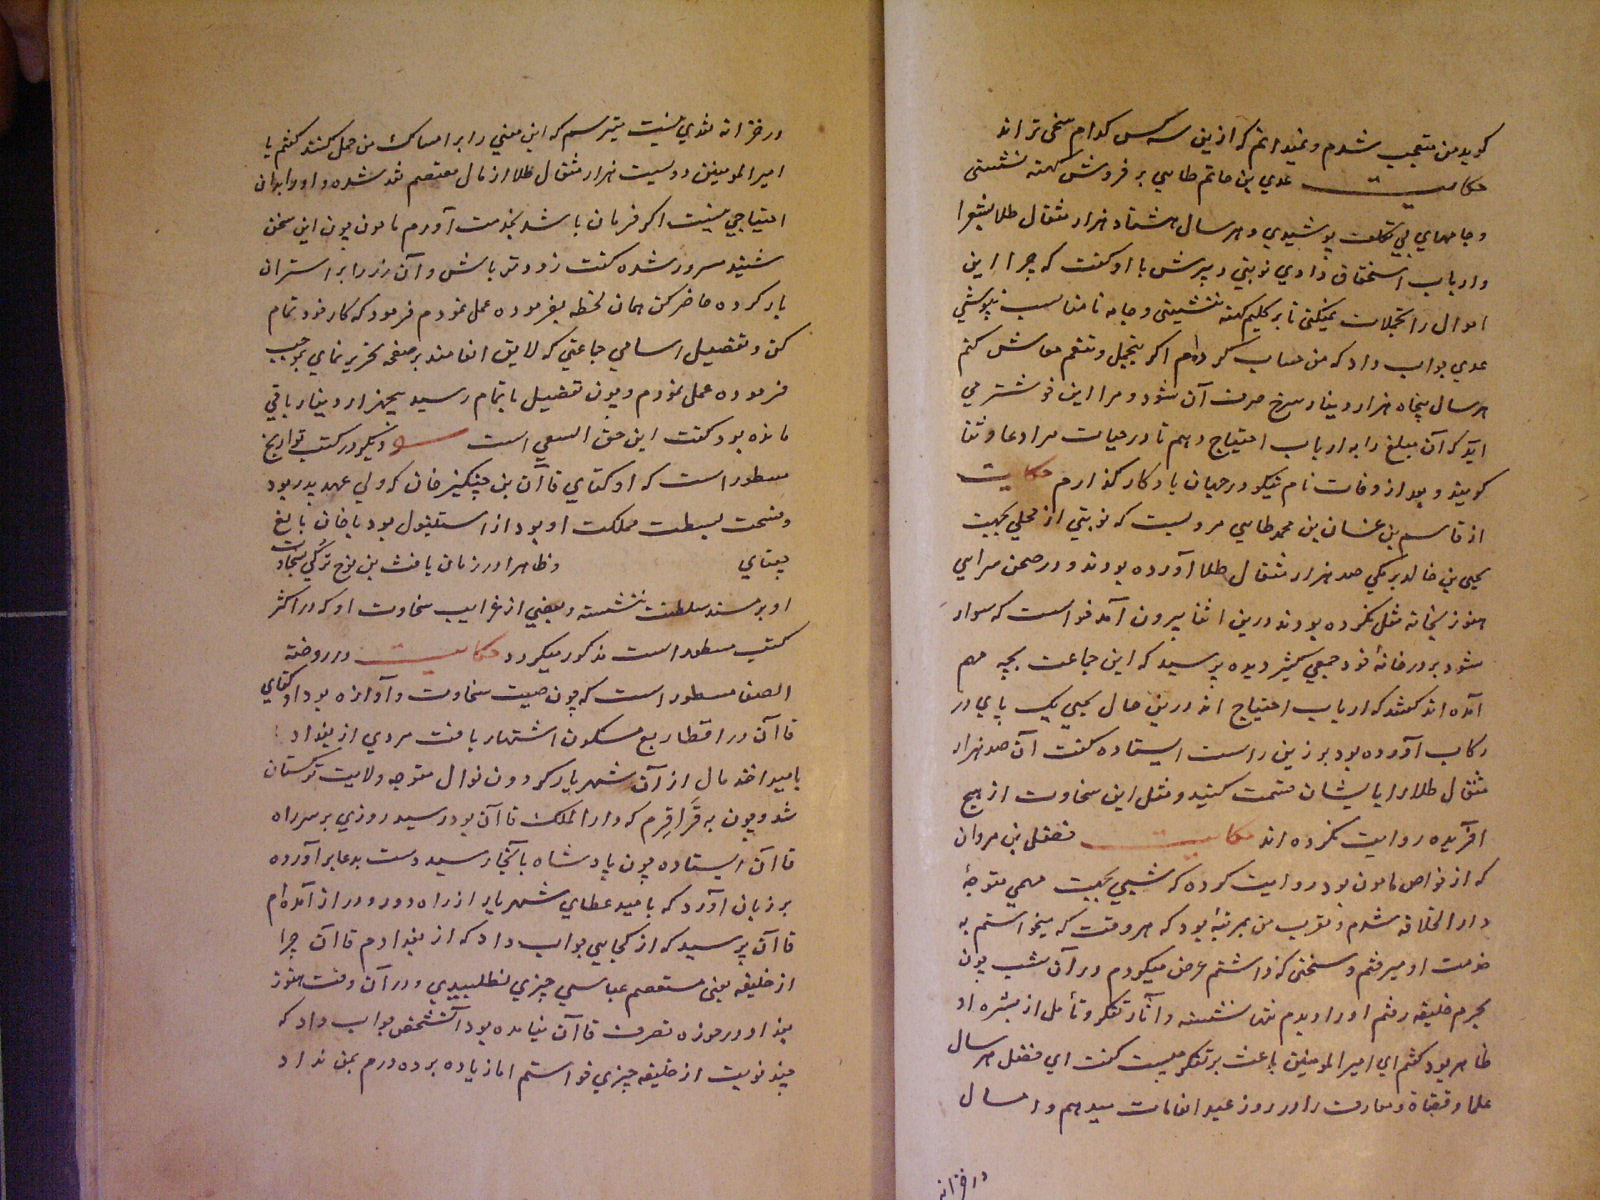 کوید من متعجب شدم و نمیدانم که ازین سه کس کدام سخی تر اند
حکایت عدی بن حاتم طاهی بر فروش کهنه نشستی
و جامهای بی تکلف پوشیدی و هر سال هشتاد هزار مثقال طلا بشعرا
و ارباب استحقاق دادی نوبتی پسرش با او کفت که چرا این
اموال را تجملات نمیکنی تا بر کلیم کهنه ننشینی و جامه نامناسب نپوشی
عدی جواب داد که من حساب کرده‌ام اکر بتجمل و تنعم معاش کنم
هر سال پنجاه هزار دینار سرخ صرف آن شود و مرا این خوشتر می
آید که آن مبلغ را به ارباب احتیاج دهم تا در حیات مرا دعا و ثنا
کویند و بعد از وفات نام نیکو در جهان یادکار کذارم حکایت
از قاسم بن غسان بن محمد طاهی مرویست که نوبتی از محلی بجهت
یحیی بن خالد برمکی صد هزار مثقال طلا آورده بودند و در صحن سرای
هنوز بخانه نقل نکرده بودند درین اثنا بیرون آمد خواست که سوار
شود بر در خانهٔ خود جمعی کثیر دیده پرسید که این جماعت بچه مهم
آمده اند کفتند که ارباب احتیاج اند درین حال یحیی یک پای در
رکاب آورده بود بر زین راست ایستاده کفت آن صد هزار
مثقال طلا را بایشان قسمت کنید و مثل این سخاوت از هیچ
افریده روایت نکرده اند حکایت فضل بن مروان
که از خواص مامون بود روایت کرده که شبی بجهت مهمی متوجهٔ
دار الخلافه شدم و تقرب من بمرتبهٔ بود که هر وقت که میخواستم به
خدمت او میرفتم و سخنی که داشتم عرض میکردم در آن شب چون
بحرم خلیفه رفتم او را دیدم تنها نشسته و آثار تفکر و تأمل از بشره او
ظاهر بود کفتم ای امیر المومنین باعث بر تفکر چیست کفت ای فضل هر سال
علما و قضاة و معارف را در روز عید انعامات میدهم و امسال
در خزانه
در خزانه نقدی نیست میترسم که این معنی را بر امساک من حمل کنند کفتم یا
امیر المومنین دویست هزار مثقال طلا از مال معتصم نقد شده و او را بدان
احتیاجی نیست اکر فرمان باشد بخدمت آورم مامون چون این سخن
شنید مسرور شده کفت زودتر باش و آن زر را بر استران
بار کرده حاضر کن همان لحظه بفرموده عمل نمودم فرمود که کار خود تمام
کن و تفصیل اسامی جماعتی که لایق انعامند بر صفحه تحریر نمای بموجب
فرموده عمل نمودم و چون تفصیل باتمام رسید پنجهزار دینار باقی
مانده بود کفت این حق السعی است و نیکو در کتب تواریخ
مسطور است که اوکتای قاآن بن چنکیز خان که ولی عهد پدر بود
و فسحت بسطت مملکت او بود از استنبول بود تا خان بالغ
چغتای و ظاهرا در زمان یافث بن نوح ترکی بسخاوت
او بر مسند سلطنت ننشسته و بعضی از غرایب سخاوت او که در اکثر
کتب مسطور است مذکور میکردد حکایت در روضة
الصفا مسطور است که چون صیت سخاوت و آوازه جود اوکتای
قاآن در اقطار ربع مسکون اشتهار یافت مردی از بغداد
بامید اخذ مال از آن شهریار کردون نوال متوجه ولایت ترکستان
شد و چون به قَراقِرم که دار الملک قاآن بود رسید روزی بر سر راه
قاآن ایستاده چون پادشاه بآنجا رسید دست بدعا بر آورده
بر زبان آورد که بامید عطای شهریار از راه دور و دراز آمده‌ام
قاآن پرسید که از کجایی جواب داد که از بغدادم قاآن چرا
از خلیفه یعنی مستعصم عباسی چیزی نطلبیدی و در آن وقت هنوز
بغداد در حوزه تصرف قاآن نیامده بود آنشخص جواب داد که
چند نوبت از خلیفه چیزی خواستم اما زیاده بر ده درم بمن نداد